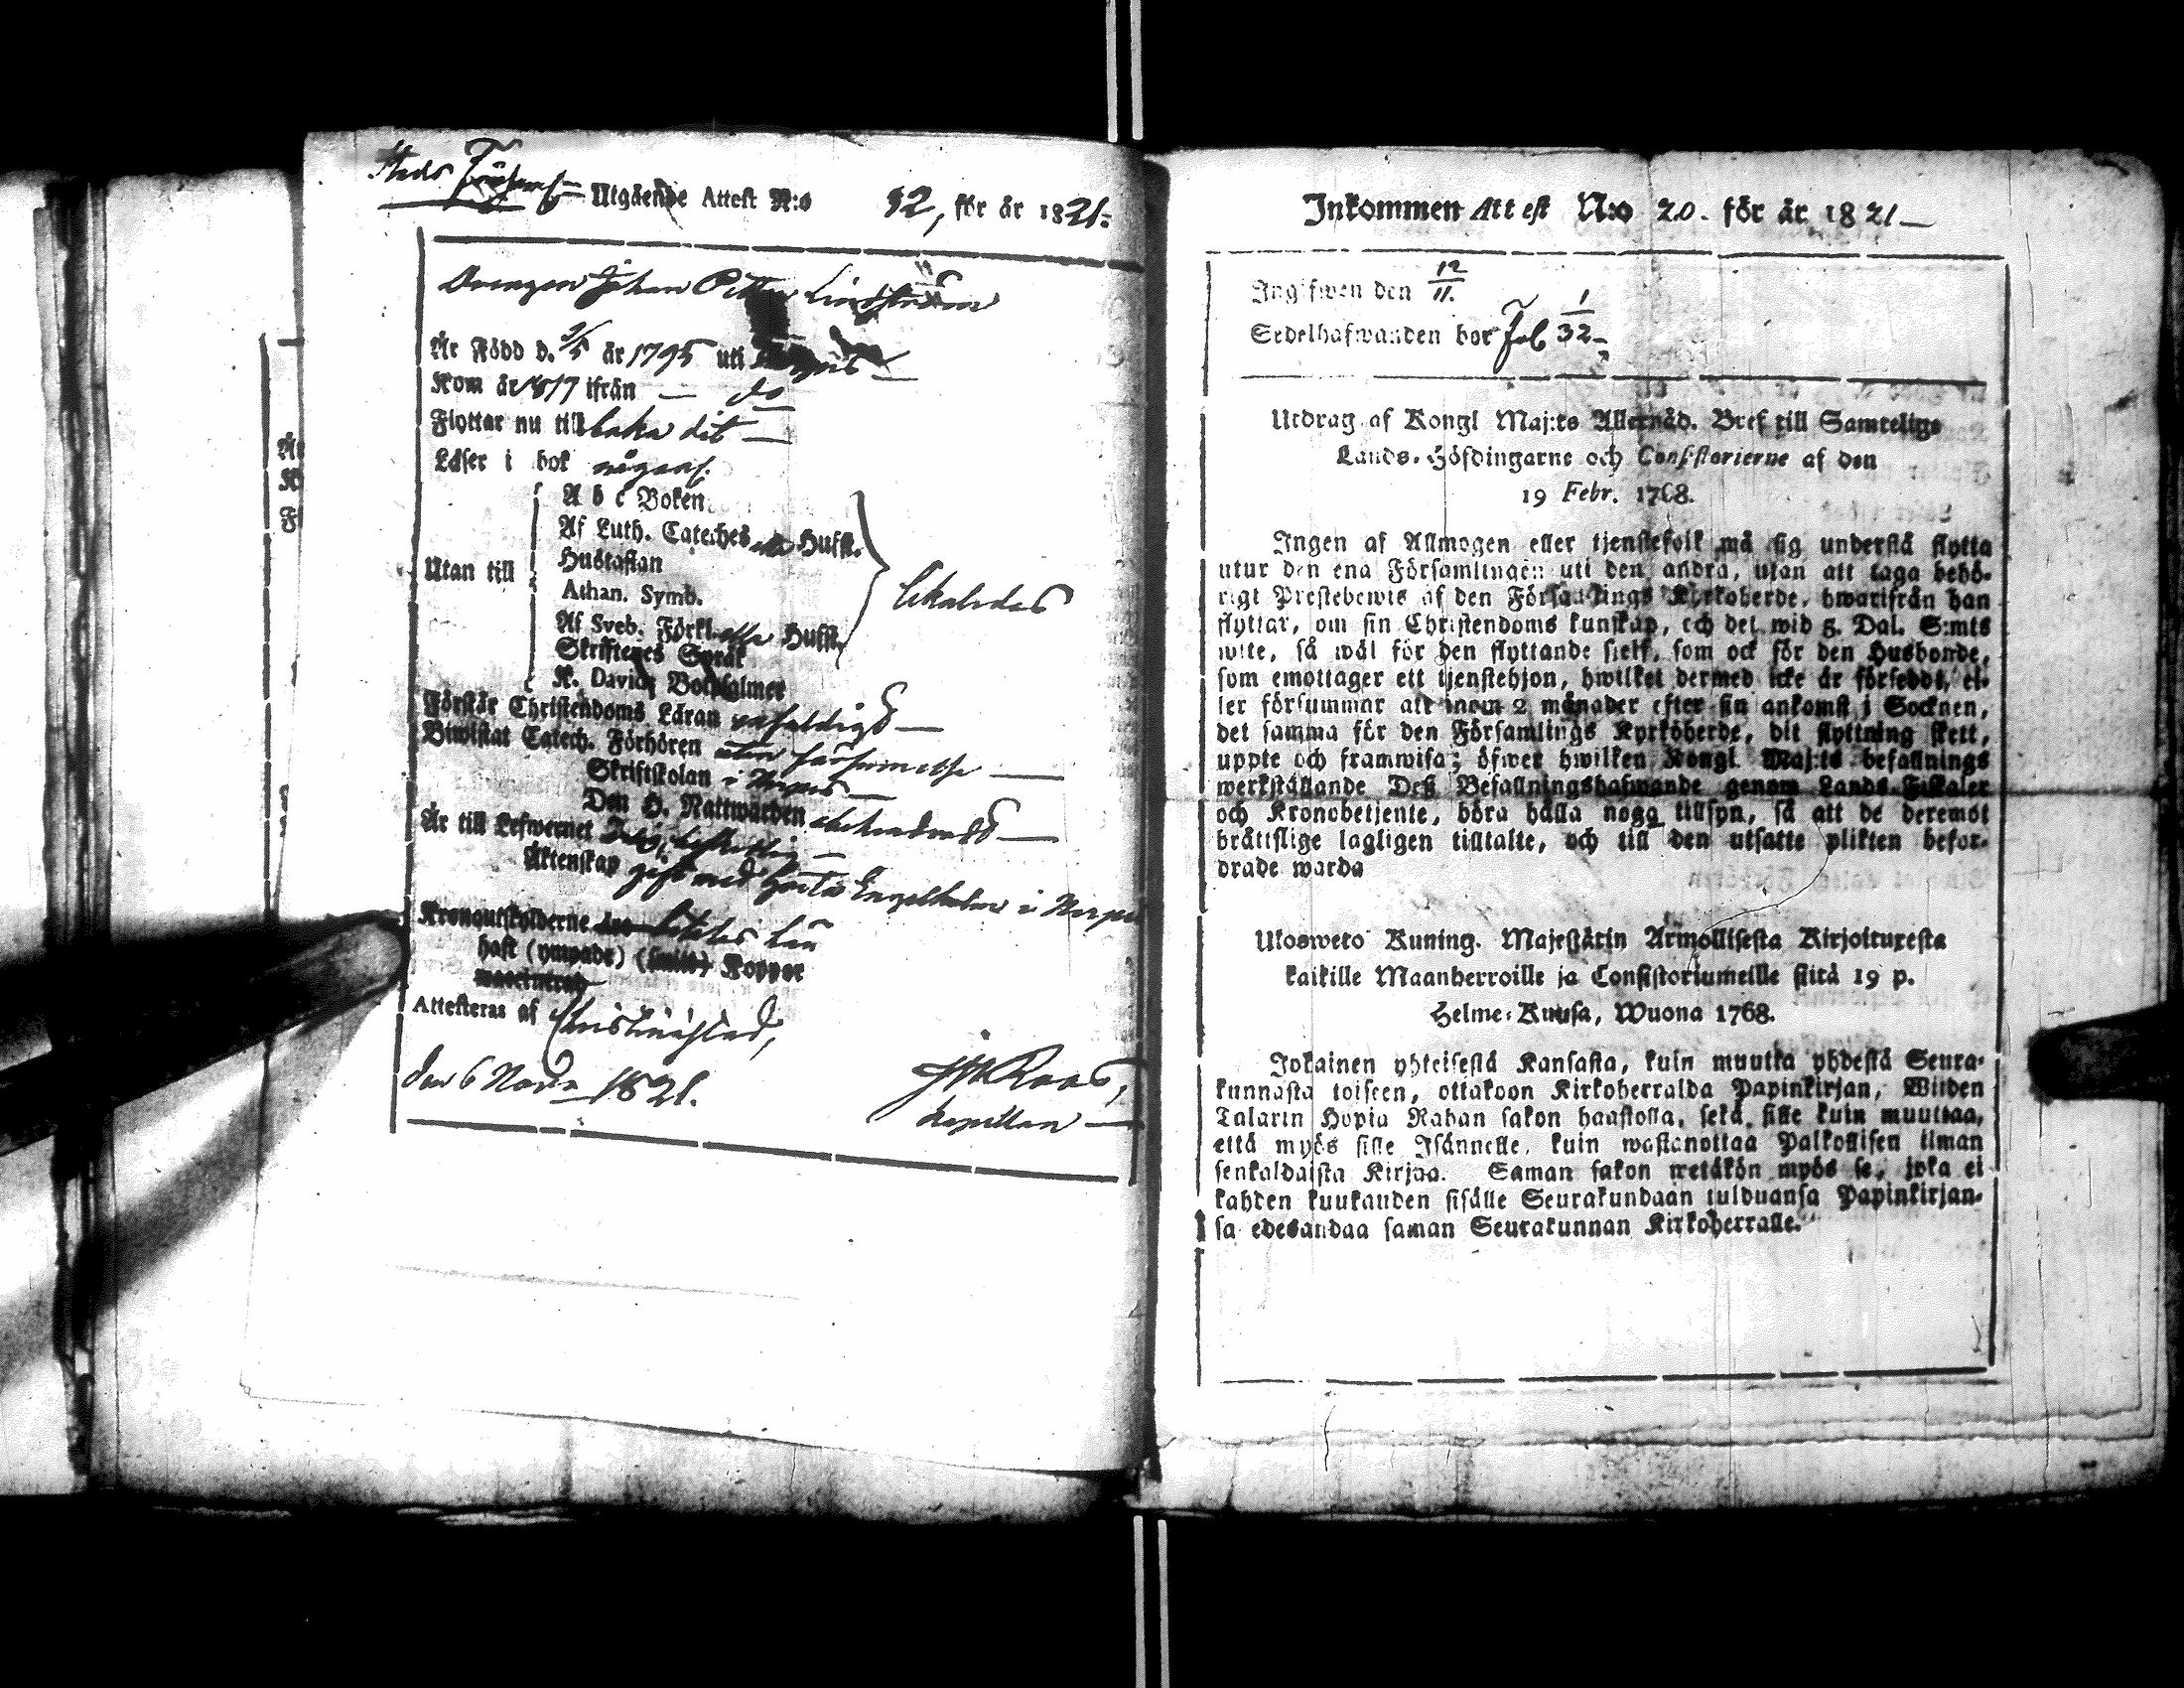 Stads Förs:
Utgående Attest N:o 32, för år 1821.
Drengen Johan Petter Lindström
Är Född d. 3/5 år 1795 uti
Kom år 1817 ifrån — do
Flyttar nu till baka dit —
Läser i bok någorl.
Utan till
A b c Boken.
Af Luth. Cateches Hufst.
Hustaflan
Athan. Symb.
Af Sveb. Förkl. Hufst.
Skriftenes Språk
K. Davids Botpsalmer
Förstår Christendoms Läran enfaldigt —
Biwistat Catech. Förhören utan försummelse —
Skriftskolan i Nerpes —
Den H. Nattwarden —
Är till Lefwernet
Äktenskap gift med Greta Engelholm i Nerpes
Kronoutskylderne här
haft (ympade) Koppor
Attesteras af Christinæstad,
den 6 Nov. 1821.
Kapellan —
Inkommen Attest N:o 20. för år 1821 —
Ingifwen den 12/11.
Sedelhafwanden bor Fol 1/32 —
Utdrag af Kongl Maj:ts Allernåd. Bref till Samtelige
Lands-Höfdingarne och Consistorierne af den
19 Febr. 1768.
Ingen af Allmogen eller tjenstefolk må sig understå flytta
utur den ena Församlingen uti den andra, utan att taga behö-
rigt Prestebewis af den Församlings Kyrkoherde, hwarifrån han
flyttar, om sin Christendoms kunskap, och det wid 5. Dal. S:mts
wite, så wäl för den flyttande sielf, som ock för den Husbonde,
som emottager ett tjenstehjon, hwilket dermed icke är försedt, el-
ler försummar att inom 2 månader efter sin ankomst i Socknen,
det samma för den Församlings Kyrkoherde, dit flyttning skett,
uppte och framwisa; öfwer hwilken Kongl Maj:ts befallnings
werkställande Deß Befallningshafwande genom Lands-Fiskaler
och Kronobetjente, böra hålla noga tillsyn, så att de deremot
bråttslige lagligen tilltalte, och till den utsatte plikten befor-
drade warda
Ulosweto Kuning. Majestätin Armollisesta Kirjoituxesta
kaikille Maanherroille ja Consistoriumeille siitä 19 p.
Helme-Kuusa, Wuona 1768.
Jokainen yhteisestä Kansasta, kuin muutta yhdestä Seura-
kunnasta toiseen, ottakoon Kirkoherralda Papinkirjan, Wiiden
Talarin Hopia Rahan sakon haastolla, sekä sille kuin muuttaa,
että myös sille Isännelle, kuin wastanottaa Palkollisen ilman
senkaldaista Kirjaa. Saman sakon wetäkön myös se, joka ei
kahden kuukauden sisälle Seurakundaan tulduansa Papinkirjan-
sa edesandaa saman Seurakunnan Kirkoherralle.